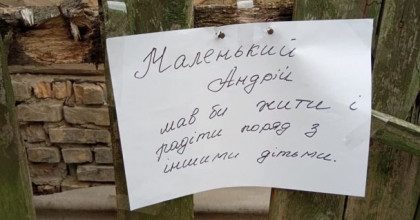 Маленький
Андрій
мав би жити і
радіти поряд з
іншими дітьми.